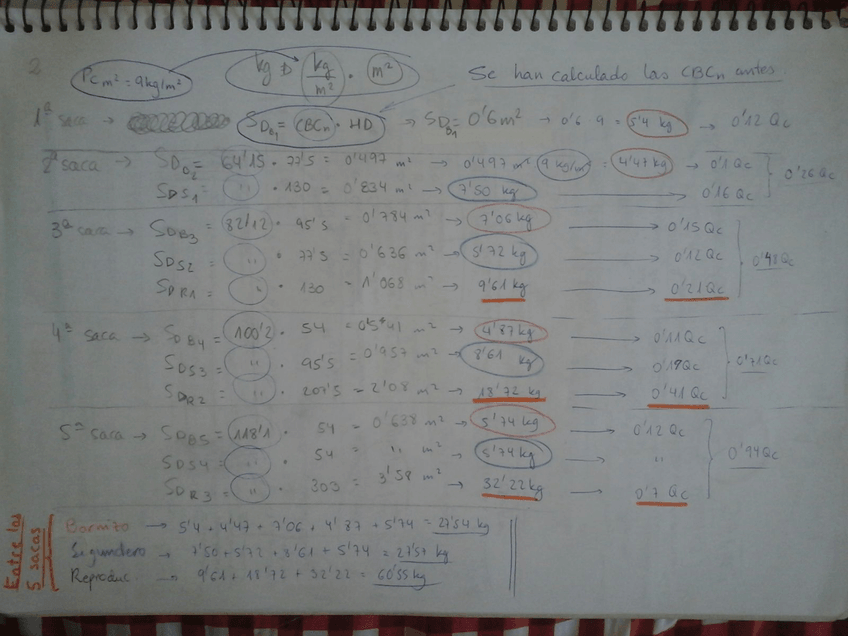 2
Pc m² = 9kg/m²
kg D kg/m² · m²
Se han calculado las CBCn antes.
1ª saca → SDB1 = CBCn · HD ⇒ SDB1 = 0'6 m² → 0'6 9 = 5'4 kg → 0'12 Qc
2ª saca → SDB2 = 64'15 · 77'5 = 0'497 m² → 0'497 m² 9 kg/m² = 4'47 kg → 0'1 Qc
SDS1 = " · 130 = 0'834 m² → 7'50 kg → 0'16 Qc
0'26 Qc
3ª saca → SDB3 = 82'12 · 95'5 = 0'784 m² → 7'06 kg → 0'15 Qc
SDS2 = " · 77'5 = 0'636 m² → 5'72 kg → 0'12 Qc
0'48 Qc
SDR1 = " · 130 = 1'068 m² → 9'61 kg → 0'21 Qc
4ª saca → SDB4 = 100'2 · 54 = 0'541 m² → 4'87 kg → 0'11 Qc
SDS3 = " · 95'5 = 0'957 m² → 8'61 kg → 0'19 Qc
0'71 Qc
SDR2 = " · 207'5 = 2'08 m² → 18'72 kg → 0'41 Qc
5ª saca → SDB5 = 118'1 · 54 = 0'638 m² → 5'74 kg → 0'12 Qc
SDS4 = " · 54 = " m² → 5'74 kg → "
0'94 Qc
SDR3 = " · 303 = 3'58 m² → 32'22 kg → 0'7 Qc
Entre las
5 sacas
Bornizo → 5'4 + 4'47 + 7'06 + 4'87 + 5'74 = 27'54 kg
Segundero → 7'50 + 5'72 + 8'61 + 5'74 = 27'57 kg
Reproduc. → 9'61 + 18'72 + 32'22 = 60'55 kg